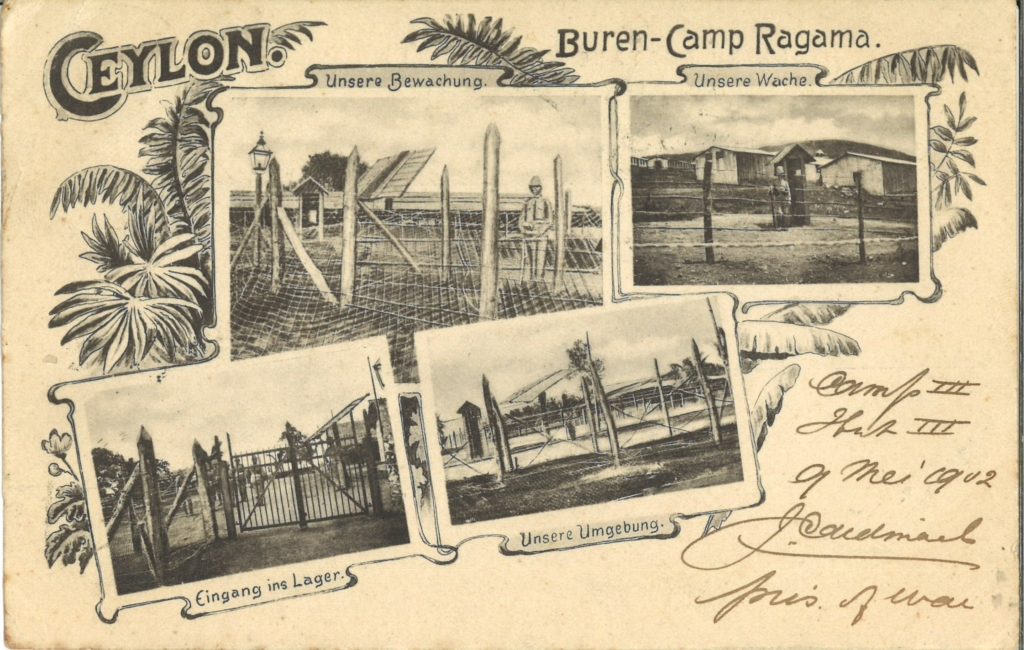 CEYLON.
Buren-Camp Ragama.
Unsere Bewachung.
Unsere Wache.
Eingang ins Lager.
Unsere Umgebung.
Camp III
Hut III
9 Mei 1902
J. Cardinael
pris. of war